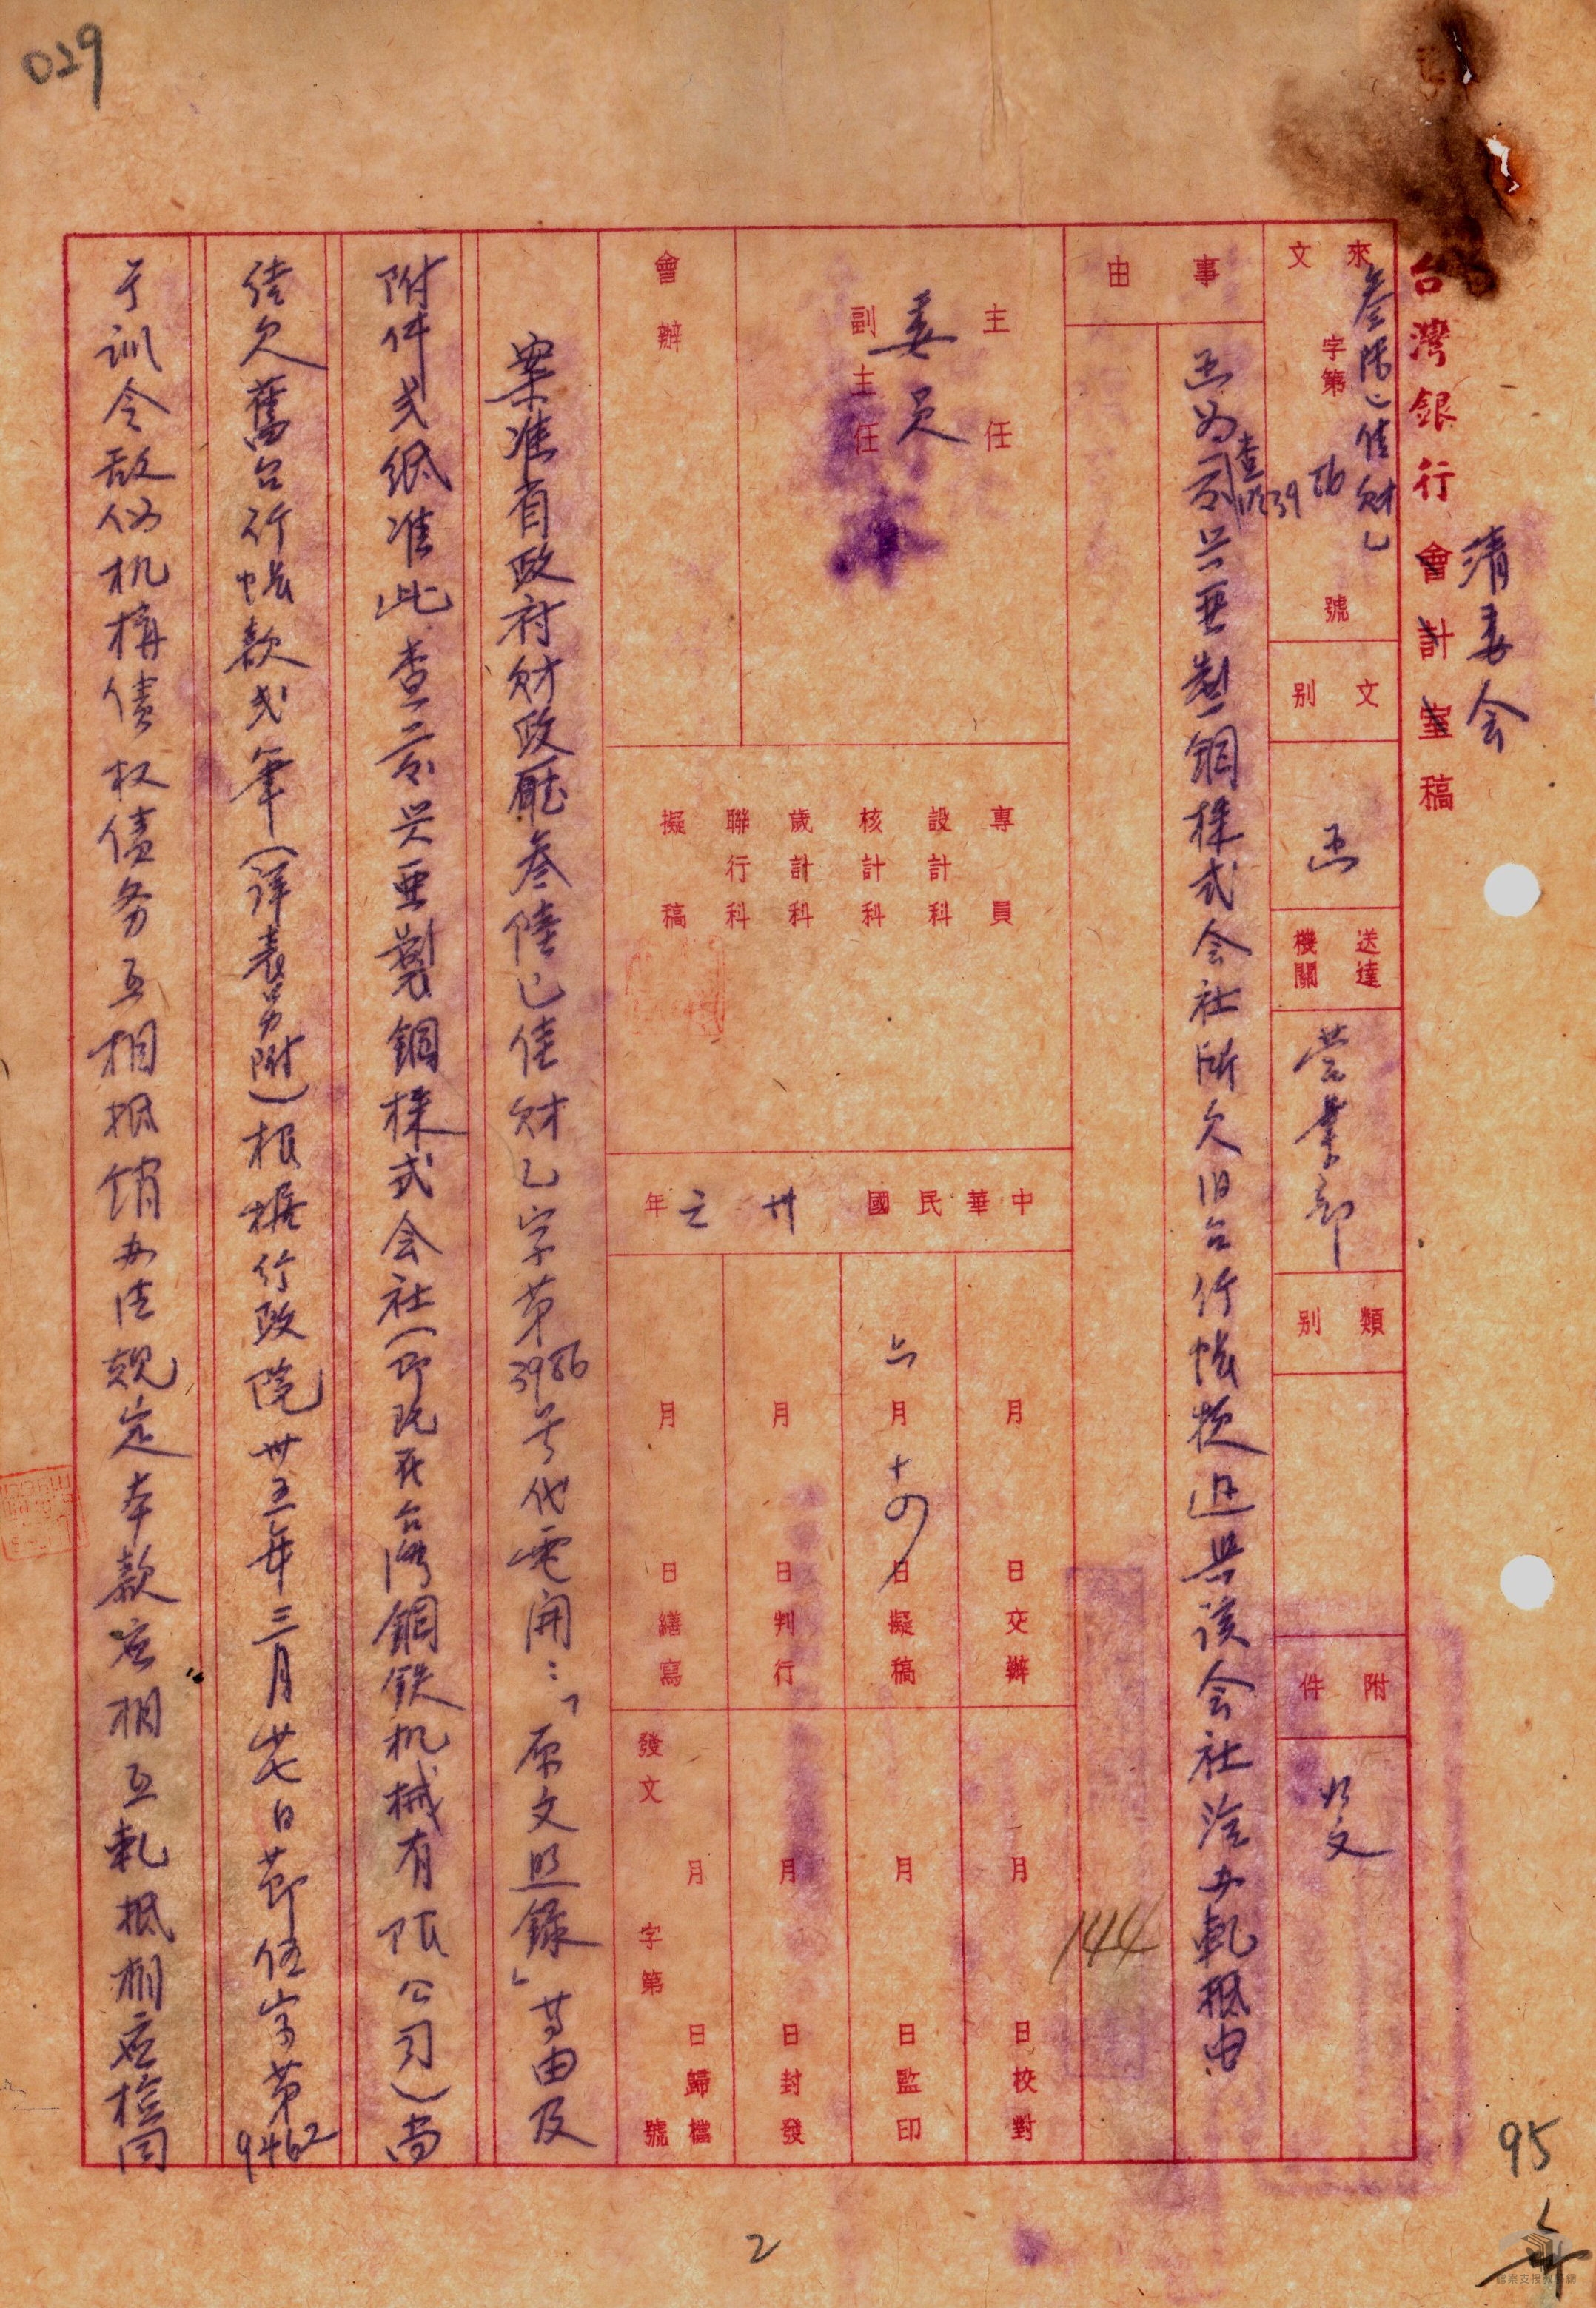 029
清委会
台灣銀行會計室稿
來文 叁陸巳佳財乙 字第 3986 號
文別 函
送達機關 营業部
類別
附件 如文
事由
函为查照京兴亜製鋼株式会社所欠旧台行帳款迅与該会社洽办軋抵由
主任
委員
副主任
會辦
專員
設計科
核計科
歲計科
聯行科
擬稿
中華民國卅六年
月 日交辦
六月十四日擬稿
月 日判行
月 日繕寫
月 日校對
月 日監印
月 日封發
月 日歸檔
發文 字第 號
144
案准省政府財政廳叁陸巳佳財乙字第3986号代電開：「原文照錄」等由及
附件弍纸准此查京兴亜製鋼株式会社(即现在台湾鋼鉄机械有限公司)尚
結欠舊台行帳款弍筆(详表另附)根据行政院卅五年三月廿七日节伍字第9462
号训令敌伪机構债权债务互相抵销办法規定本款应相互軋抵相应检同
95
2
年